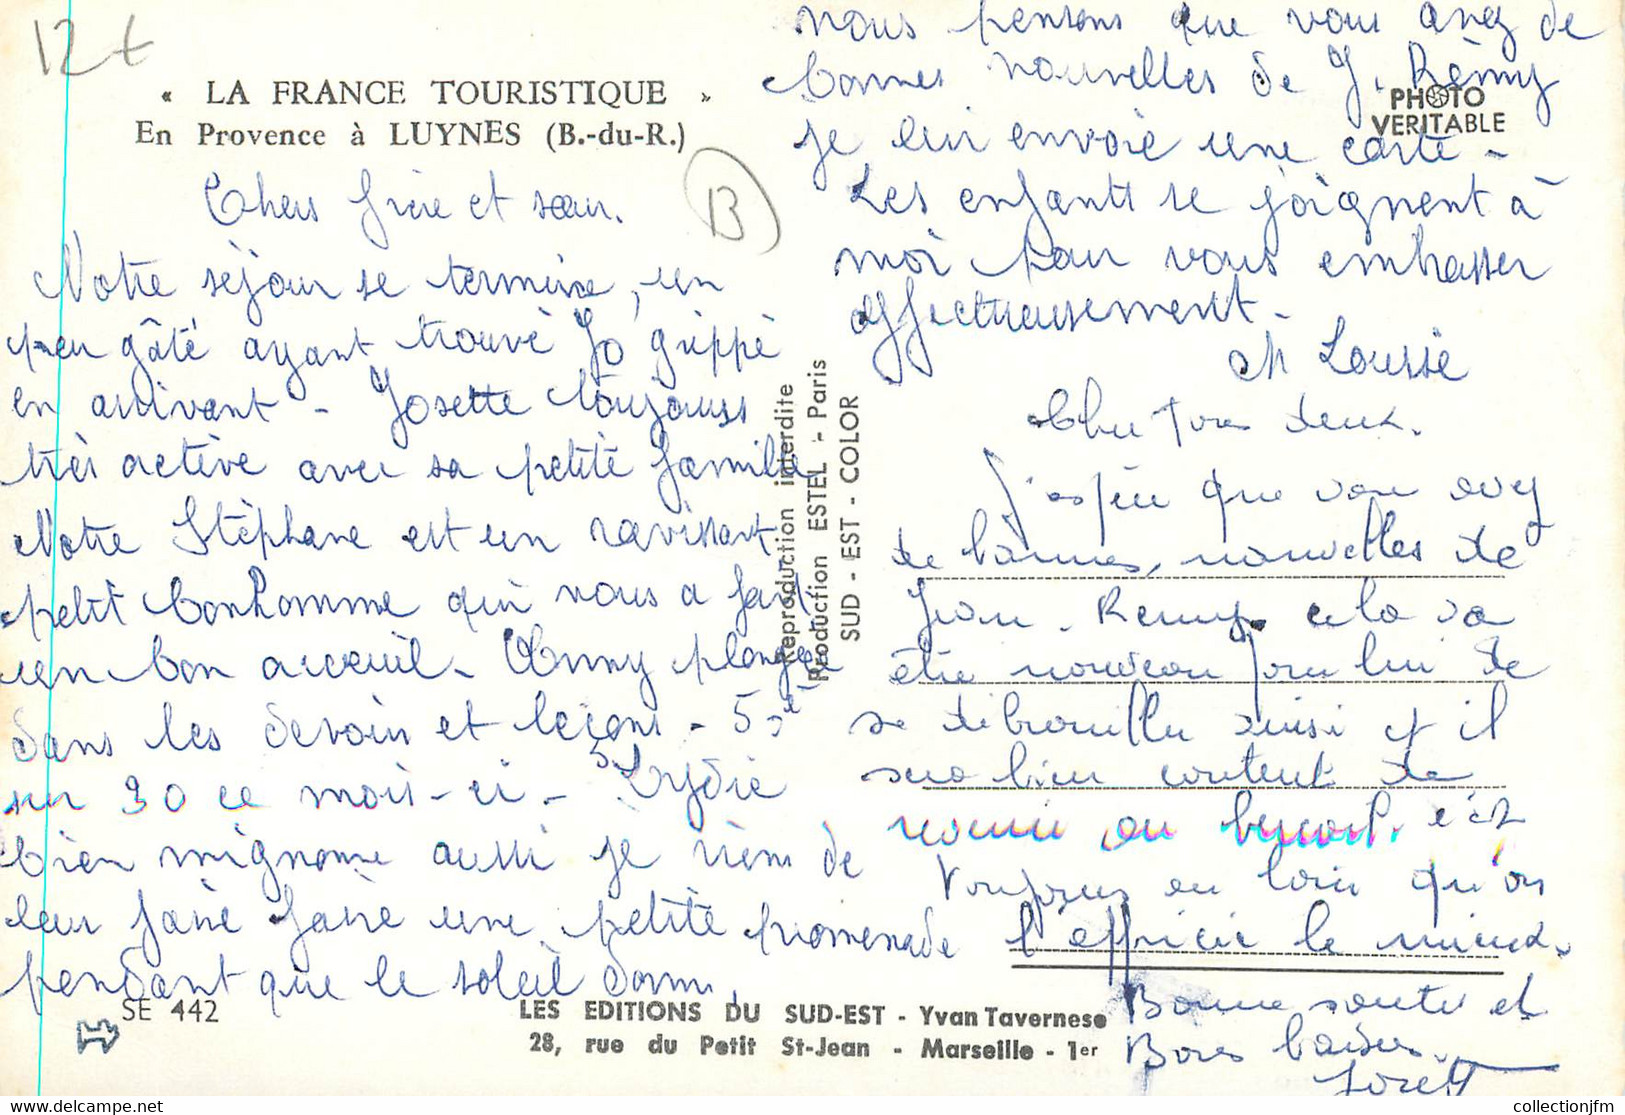 12 €
« LA FRANCE TOURISTIQUE »
En Provence à LUYNES (B.-du-R.)
B
Chers frère et sœur.
Notre séjour se termine, un
peu gâté ayant trouvé Jo grippé
en arrivant - Josette toujours
très active avec sa petite famille
Notre Stéphane est un ravissant
petit bonhomme qui nous a fait
un bon acceuil - plongée
dans les devoirs et leçons -
sur 30 ce mois-ci - Lydie
bien mignonne aussi je viens de
leur faire faire une petite promenade
pendant que le soleil donne,
SE 442
LES EDITIONS DU SUD-EST - Yvan Tavernese
28, rue du Petit St-Jean - Marseille - 1er
Reproduction interdite
Production ESTEL - Paris
SUD - EST - COLOR
PHOTO
VERITABLE
nous pensons que vous avez de
bonnes nouvelles de J. Rémy
je lui envoie une carte -
Les enfants se joignent à
moi pour vous embrasser
affectueusement -
M Louise
Cher tous deux.
J'espère que vous avez
de bonnes nouvelles de
Jean - Remy cela va
être nouveau pour lui de
se débrouiller ainsi et il
sera bien content de
revenir au c'est
Toujours au loin qu'on
l'apprécie le mieux.
Bonne santé et
Bons baisers.
collectionjfm